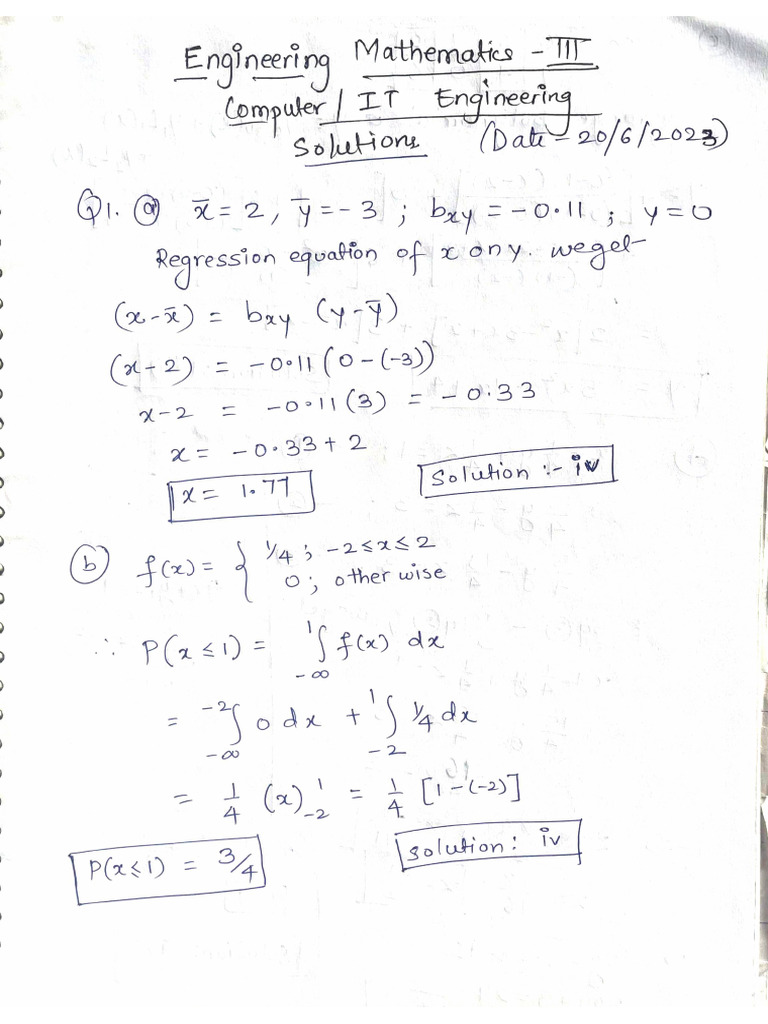 Engineering Mathematics - III
Computer / IT Engineering
Solutions (Date - 20/6/2023)
Q1. (a) x̄ = 2, ȳ = -3 ; bxy = -0.11 ; y = 0
Regression equation of x on y. we get
(x - x̄) = bxy (y - ȳ)
(x - 2) = -0.11 (0 - (-3))
x - 2 = -0.11 (3) = -0.33
x = -0.33 + 2
x = 1.77 Solution :- iv
(b) f(x) = { 1/4 ; -2 ≤ x ≤ 2
0 ; otherwise
∴ P(x ≤ 1) = ∫_{-∞}^{1} f(x) dx
= ∫_{-∞}^{-2} 0 dx + ∫_{-2}^{1} 1/4 dx
= 1/4 (x)_{-2}^{1} = 1/4 [1 - (-2)]
P(x ≤ 1) = 3/4 solution : iv